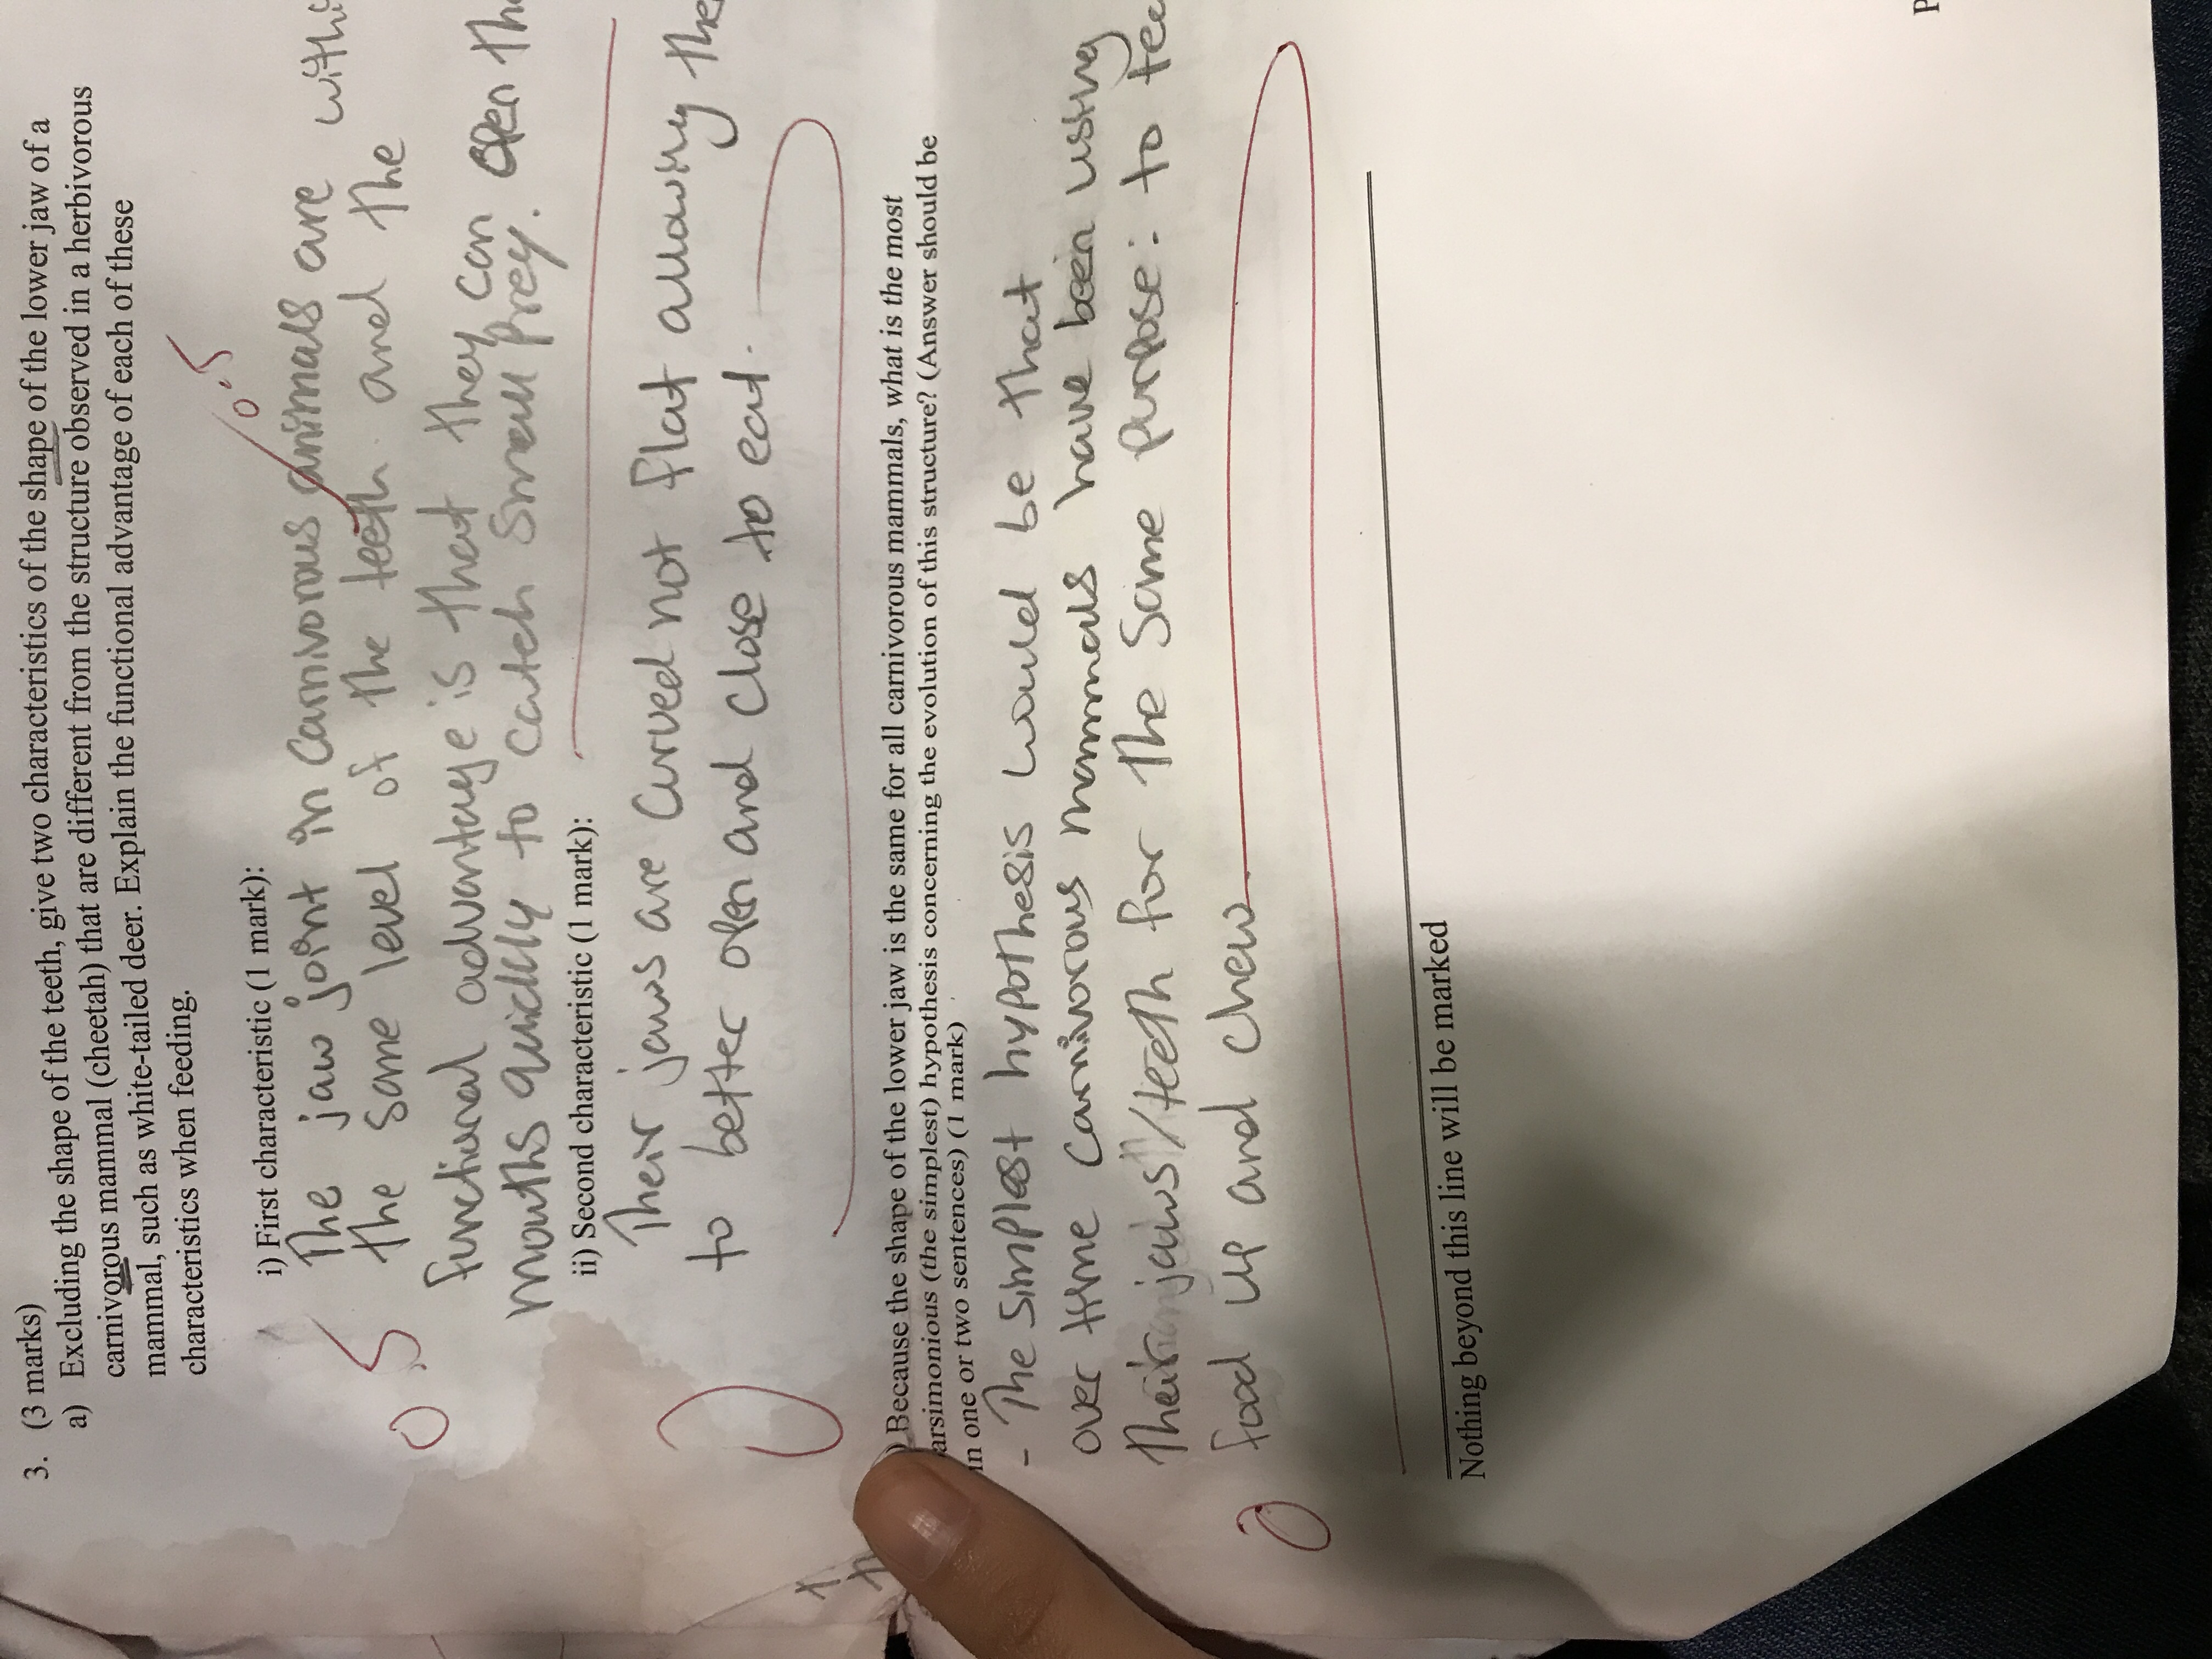 3. (3 marks)
a) Excluding the shape of the teeth, give two characteristics of the shape of the lower jaw of a
carnivorous mammal (cheetah) that are different from the structure observed in a herbivorous
mammal, such as white-tailed deer. Explain the functional advantage of each of these
characteristics when feeding.
0.5
i) First characteristic (1 mark):
The jaw joint in carnivorous animals are
the same level of the teeth and the
functional advantage is that they can open
mouths quickly to catch small prey.
0.5
ii) Second characteristic (1 mark):
Their jaws are curved not flat allowing
to better open and close to eat.
0
) Because the shape of the lower jaw is the same for all carnivorous mammals, what is the most
arsimonious (the simplest) hypothesis concerning the evolution of this structure? (Answer should be
in one or two sentences) (1 mark)
- The simplest hypothesis would be that
over time carnivorous mammals have been using
their jaws/teeth for the same purpose: to
food up and chew
0
Nothing beyond this line will be marked
P